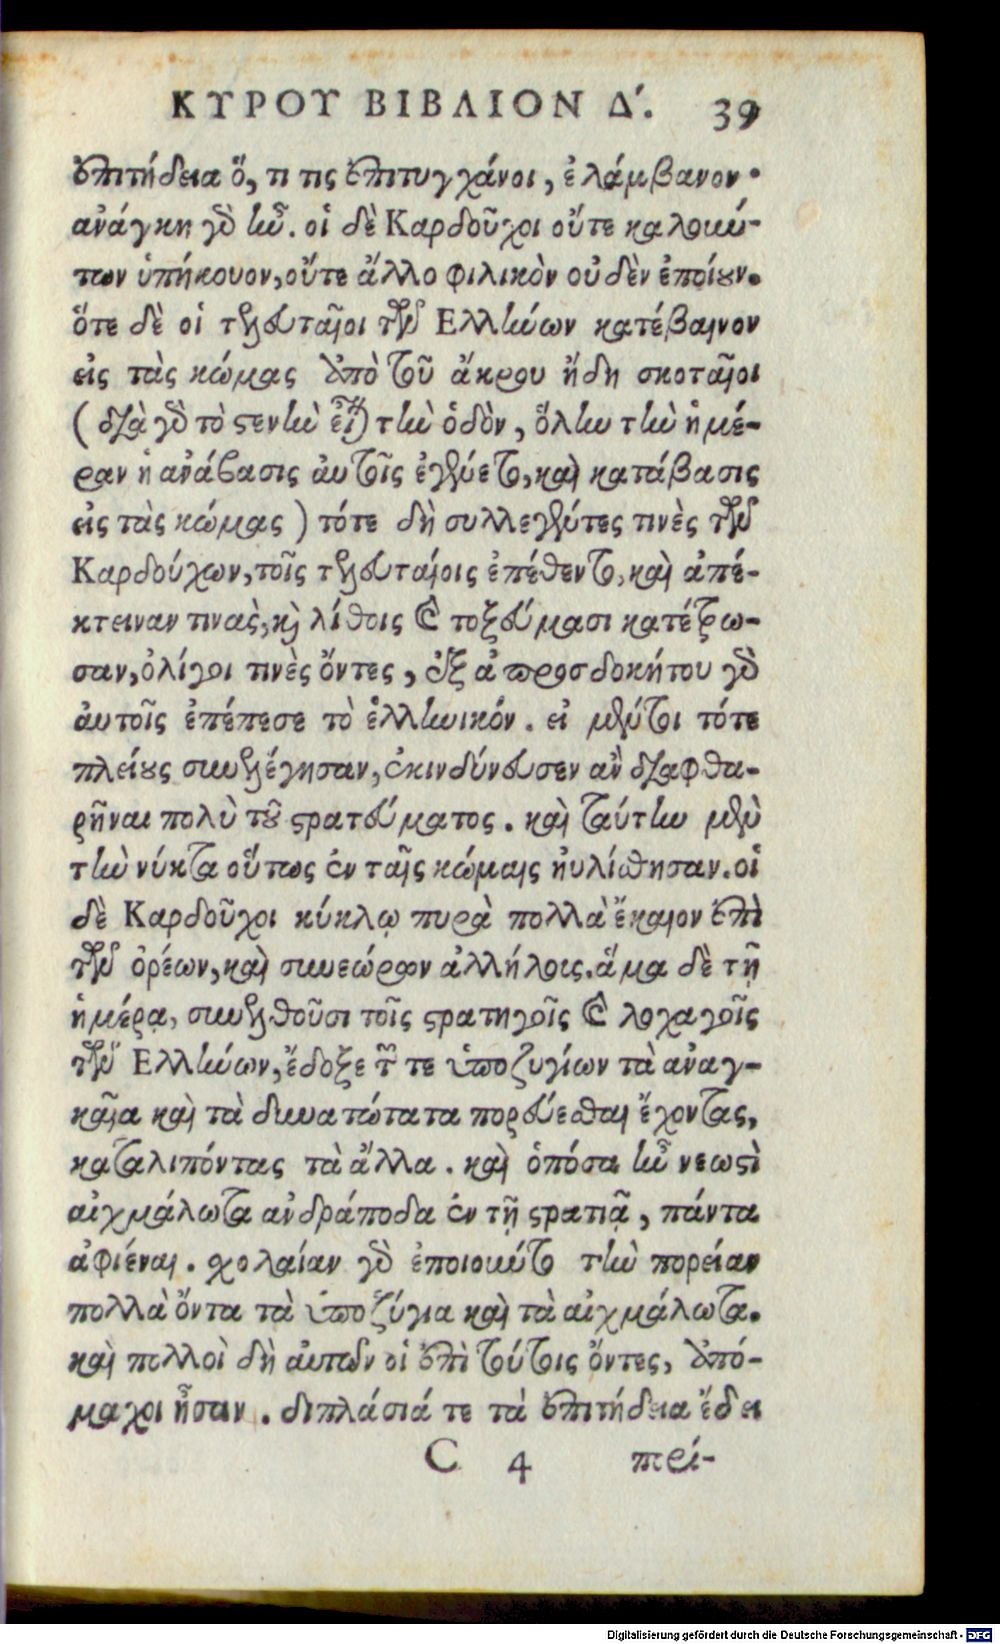 ΚΥΡΟΥ ΒΙΒΛΙΟΝ Δ΄. 39
ἐπιτήδεια ὅ, τι τις ἐπιτυγχάνοι, ἐλάμβανον·
ἀνάγκη γὸ ἦν. οἱ δὲ Καρδοῦχοι οὔτε καλούν-
των ὑπήκουον, οὔτε ἄλλο φιλικὸν οὐδὲν ἐποίουν.
ὅτε δὲ οἱ τελευταῖοι τῶν Ελλήνων κατέβαινον
εἰς τὰς κώμας ἀπὸ τοῦ ἄκρου ἤδη σκοταῖοι
(διὰ γὸ τὸ στενὴν εἶναι τὴν ὁδὸν, ὅλην τὴν ἡμέ-
ραν ἡ ἀνάβασις ἀυτοῖς ἐγένετο, καὶ κατάβασις
εἰς τὰς κώμας) τότε δὴ συλλεγέντες τινὲς τῶν
Καρδούχων, τοῖς τελευταίοις ἐπέθεντο, καὶ ἀπέ-
κτειναν τινὰς, κὶ λίθοις καὶ τοξεύμασι κατέτρω-
σαν, ὀλίγοι τινὲς ὄντες, ἐξ ἀπροσδοκήτου γὸ
ἀυτοῖς ἐπέπεσε τὸ ἑλληνικόν. εἰ μέντοι τότε
πλείους συνελέγησαν, ἐκινδύνευσεν ἂν διαφθα-
ρῆναι πολὺ τοῦ στρατεύματος. καὶ ταύτην μὲν
τὴν νύκτα οὕτως ἐν ταῖς κώμαις ηὐλίσθησαν. οἱ
δὲ Καρδοῦχοι κύκλῳ πυρὰ πολλὰ ἔκαιον ἐπὶ
τῶν ὀρέων, καὶ συνεώρων ἀλλήλοις. ἅμα δὲ τῇ
ἡμέρᾳ, συνελθοῦσι τοῖς στρατηγοῖς καὶ λοχαγοῖς
τῶν Ελλήνων, ἔδοξε τῶν τε ὑποζυγίων τὰ ἀναγ-
καῖα καὶ τὰ δυνατώτατα πορεύεσθαι ἔχοντας,
καταλιπόντας τὰ ἄλλα. καὶ ὁπόσα ἦν νεωστὶ
αἰχμάλωτα ἀνδράποδα ἐν τῇ στρατιᾷ, πάντα
ἀφιέναι. σχολαίαν γὸ ἐποιοῦντο τὴν πορείαν
πολλὰ ὄντα τὰ ὑποζύγια καὶ τὰ αἰχμάλωτα.
καὶ πολλοὶ δὴ ἀυτῶν οἱ ἐπὶ τούτοις ὄντες, ἀπό-
μαχοι ἦσαν. διπλάσιά τε τὰ ἐπιτήδεια ἔδει
C 4 πορί-
Digitalisierung gefördert durch die Deutsche Forschungsgemeinschaft - DFG